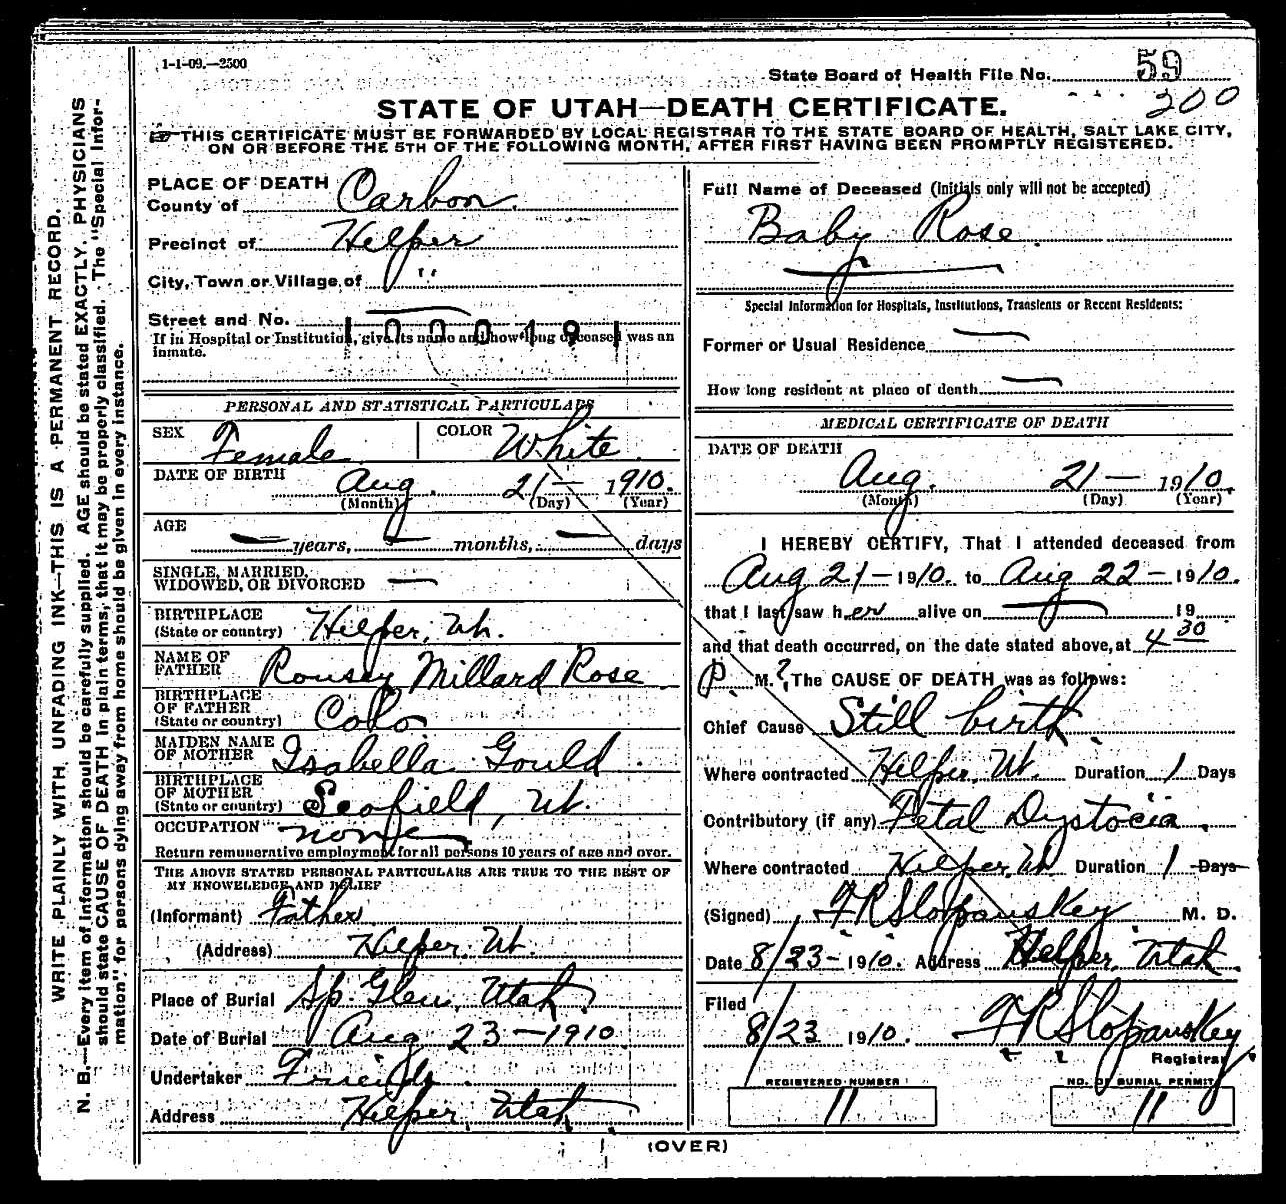 1-1-09.—2500
State Board of Health File No. 59
200
STATE OF UTAH—DEATH CERTIFICATE.
☞THIS CERTIFICATE MUST BE FORWARDED BY LOCAL REGISTRAR TO THE STATE BOARD OF HEALTH, SALT LAKE CITY,
ON OR BEFORE THE 5TH OF THE FOLLOWING MONTH, AFTER FIRST HAVING BEEN PROMPTLY REGISTERED.
WRITE PLAINLY WITH UNFADING INK—THIS IS A PERMANENT RECORD.
N. B.—Every item of information should be carefully supplied. AGE should be stated EXACTLY. PHYSICIANS
should state CAUSE OF DEATH in plain terms, that it may be properly classified. The "Special Infor-
mation" for persons dying away from home should be given in every instance.
PLACE OF DEATH
County of Carbon
Precinct of Helper
City, Town or Village of "
Street and No. —
1000191
If in Hospital or Institution, give its name and how long deceased was an
inmate.
PERSONAL AND STATISTICAL PARTICULARS
SEX Female COLOR White
DATE OF BIRTH Aug. 21— 1910.
(Month) (Day) (Year)
AGE — years, — months, — days
SINGLE, MARRIED,
WIDOWED, OR DIVORCED —
BIRTHPLACE
(State or country) Helper, Ut.
NAME OF
FATHER Rousey Millard Rose
BIRTHPLACE
OF FATHER
(State or country) Colo.
MAIDEN NAME
OF MOTHER Isabella Gould
BIRTHPLACE
OF MOTHER
(State or country) Scofield, Ut.
OCCUPATION none
Return remunerative employment for all persons 10 years of age and over.
THE ABOVE STATED PERSONAL PARTICULARS ARE TRUE TO THE BEST OF
MY KNOWELEDGE AND BELIEF
(Informant) Father
(Address) Helper, Ut.
Place of Burial Sp. Glen, Utah
Date of Burial Aug 23—1910
Undertaker Friends
Address Helper, Utah
Full Name of Deceased (Initials only will not be accepted)
Baby Rose
Special Information for Hospitals, Institutions, Transients or Recent Residents:
Former or Usual Residence —
How long resident at place of death —
MEDICAL CERTIFICATE OF DEATH
DATE OF DEATH
Aug. 21— 1910.
(Month) (Day) (Year)
I HEREBY CERTIFY, That I attended deceased from
Aug 21— 1910. to Aug 22— 1910.
that I last saw her alive on — 19
and that death occurred, on the date stated above, at 4 30
P. M. The CAUSE OF DEATH was as follows:
Chief Cause Still birth.
Where contracted Helper, Ut. Duration 1 Days
Contributory (if any) Fetal Dystocia.
Where contracted Helper, Ut Duration 1 Days
(Signed) F R Slopanskey M. D.
Date 8/23— 1910. Address Helper, Utah.
Filed
8/23 1910. F R Slopanskey
Registrar
REGISTERED NUMBER NO. OF BURIAL PERMIT
11 11
(OVER)